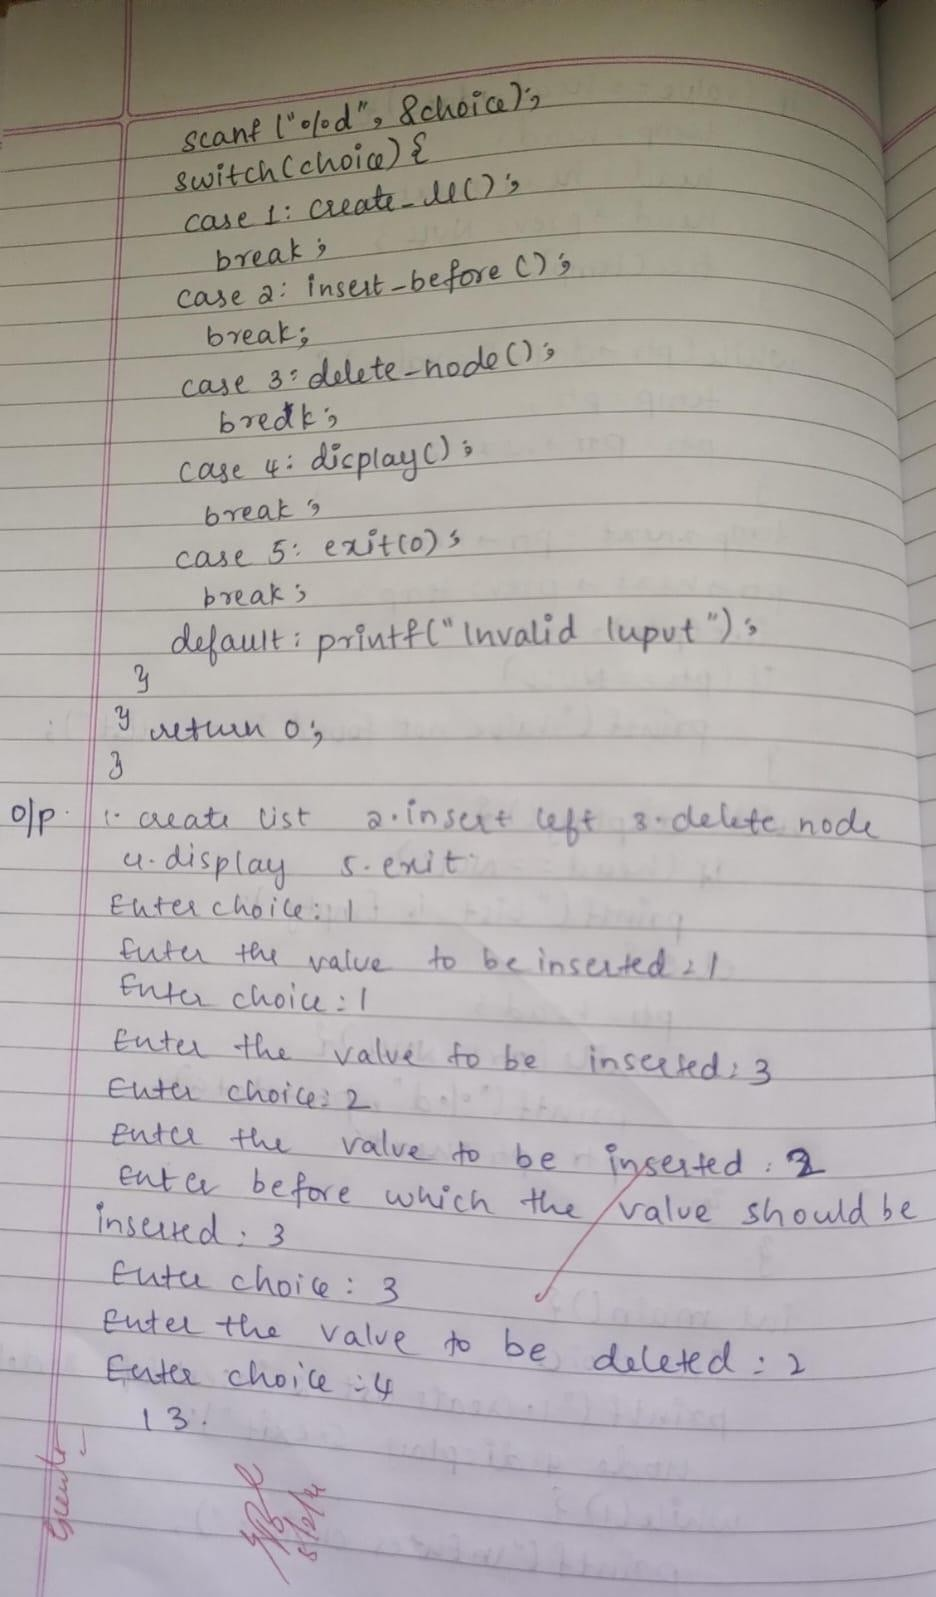 scanf ("%d", &choice);
switch(choice) {
case 1: create_ll();
break;
case 2: insert_before();
break;
case 3: delete_node();
break;
case 4: display();
break;
case 5: exit(0);
break;
default: printf("Invalid Input");
}
} return 0;
}
o/p. 1. create list 2. insert left 3. delete node
4. display 5. exit
Enter choice: 1
Enter the value to be inserted: 1
Enter choice: 1
Enter the value to be inserted: 3
Enter choice: 2
Enter the value to be inserted: 2
Enter before which the value should be
inserted: 3
Enter choice: 3
Enter the value to be deleted: 2
Enter choice: 4
1 3.